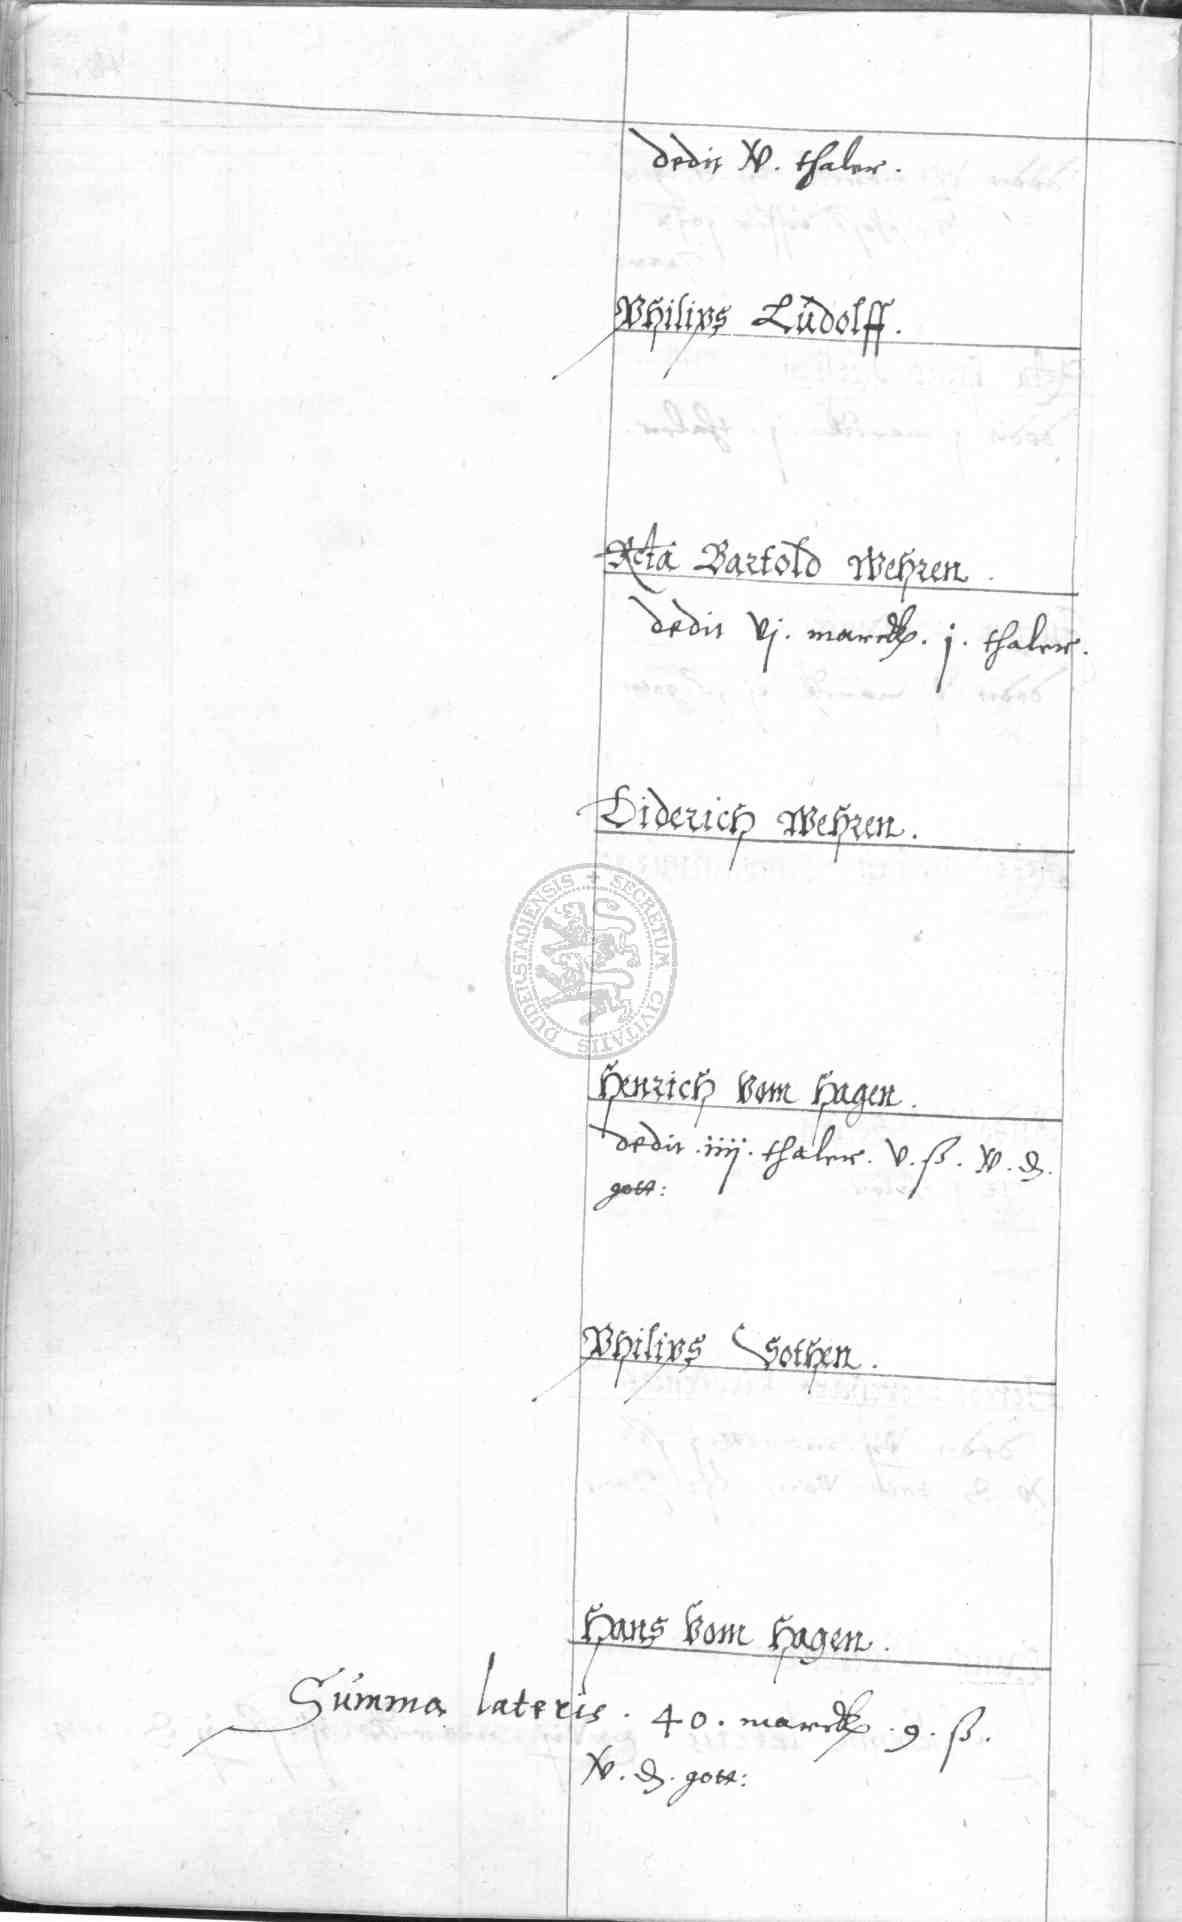 dedit xv. thaler.
Philips Lüdolff.
Acta Bartold Wehren.
dedit vj. marck. j. thaler.
Diderich Wehren.
SECRETUM CIVITATIS DUDERSTADIENSIS
Henrich vom Hagen.
dedit .iiij. thaler. v. ß. xv. ₰.
gott:
Philips Sothen.
Hans vom Hagen.
Summa lateris. 40. marck. 9. ß.
xv. ₰. gott: